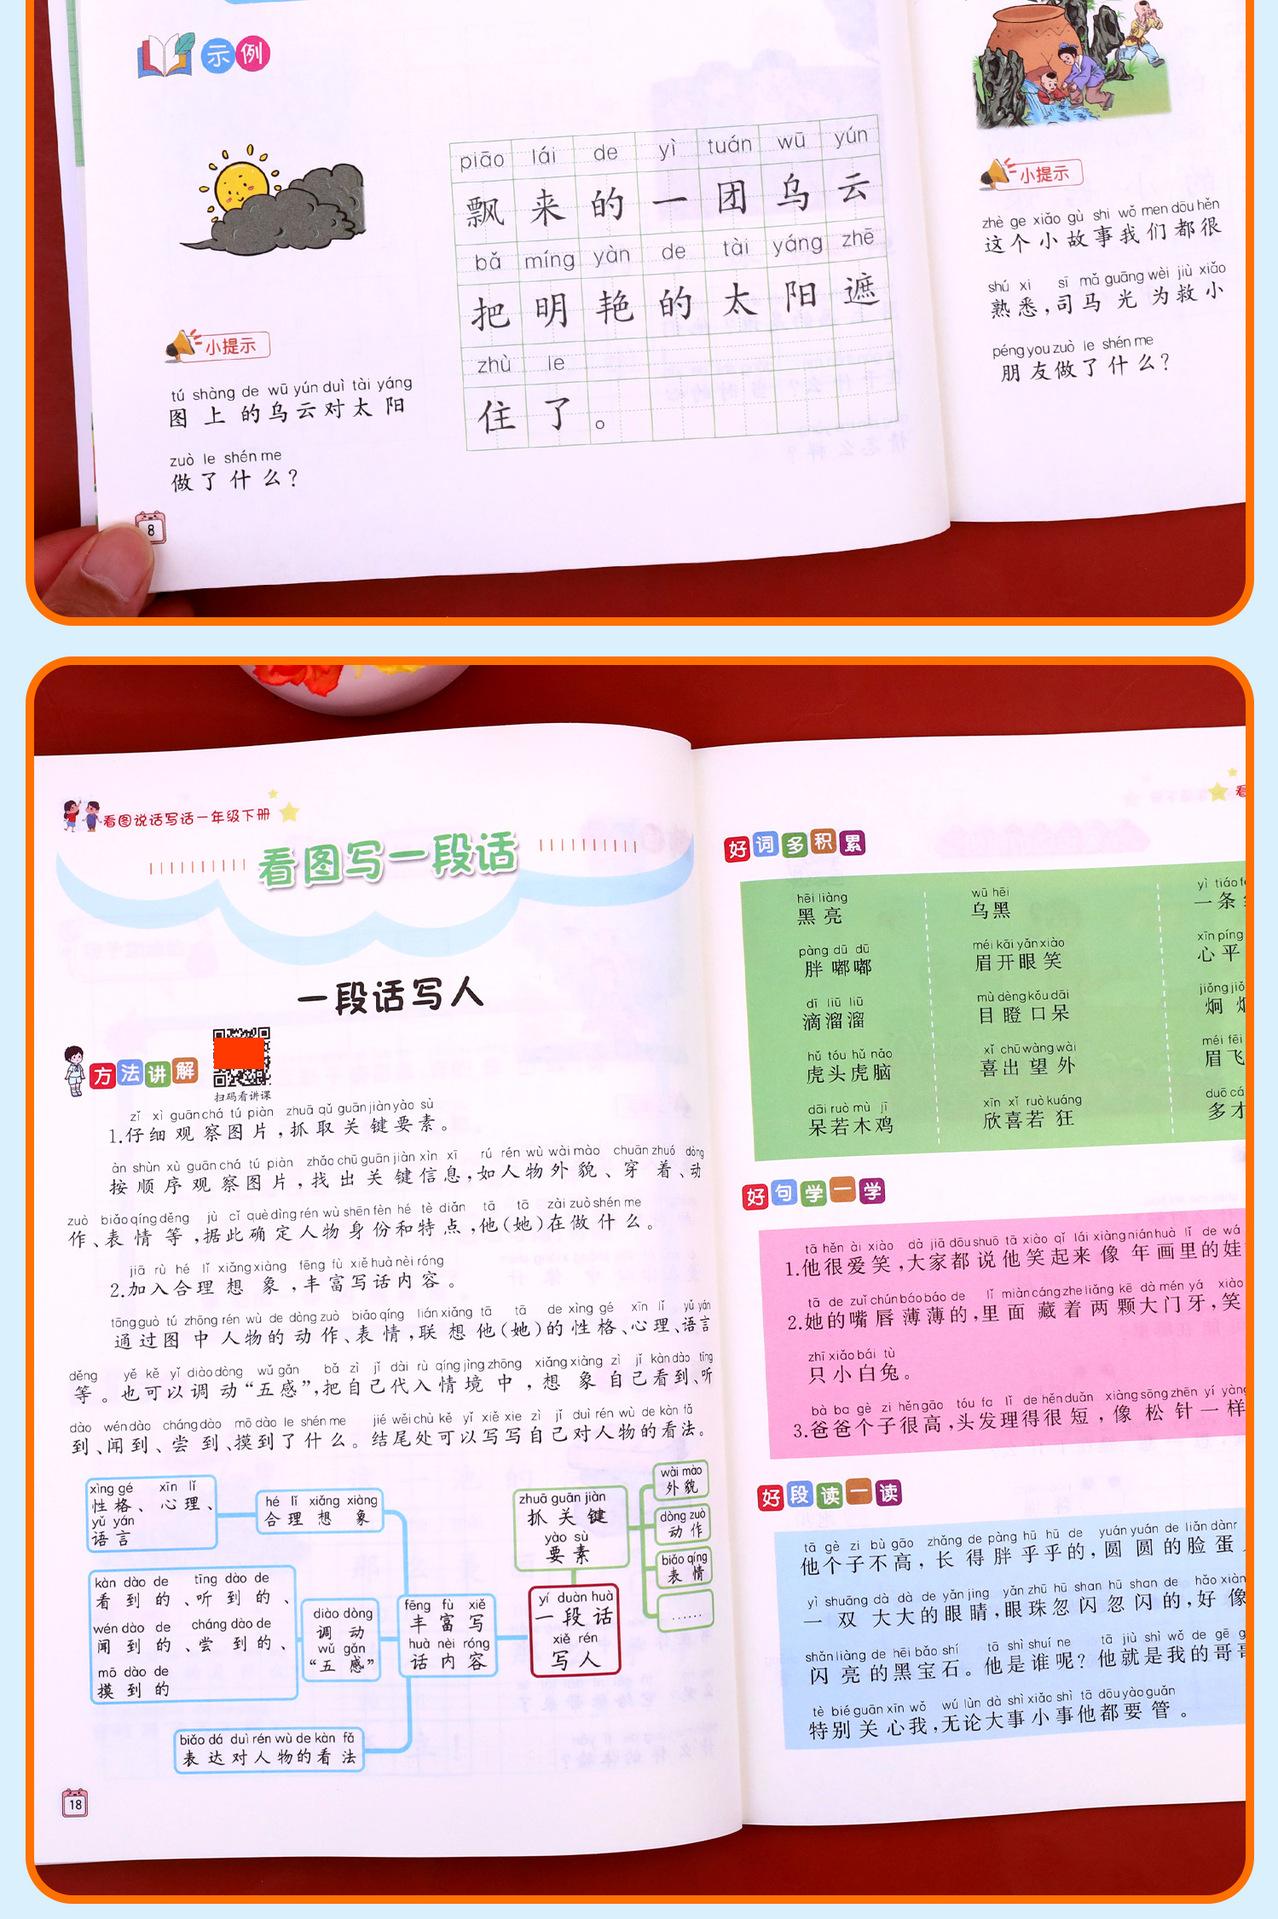 示例
piāo lái de yì tuán wū yún
飘来的一团乌云
bǎ míng yàn de tài yáng zhē
把明艳的太阳遮
zhù le
住了。
小提示
tú shàng de wū yún duì tài yáng
图上的乌云对太阳
zuò le shén me
做了什么?
8
小提示
zhè ge xiǎo gù shi wǒ men dōu hěn
这个小故事我们都很
shú xi sī mǎ guāng wèi jiù xiǎo
熟悉,司马光为救小
péng you zuò le shén me
朋友做了什么?
看图说话写话一年级下册
看图写一段话
一段话写人
方法讲解
扫码看讲课
zǐ xì guān chá tú piàn zhuā qǔ guān jiàn yào sù
1.仔细观察图片,抓取关键要素。
àn shùn xù guān chá tú piàn zhǎo chū guān jiàn xìn xī rú rén wù wài mào chuān zhuó dòng
按顺序观察图片,找出关键信息,如人物外貌、穿着、动
zuò biǎo qíng děng jù cǐ què dìng rén wù shēn fèn hé tè diǎn tā tā zài zuò shén me
作、表情等,据此确定人物身份和特点,他(她)在做什么。
jiā rù hé lǐ xiǎng xiàng fēng fù xiě huà nèi róng
2.加入合理想象,丰富写话内容。
tōng guò tú zhōng rén wù de dòng zuò biǎo qíng lián xiǎng tā tā de xìng gé xīn lǐ yǔ yán
通过图中人物的动作、表情,联想他(她)的性格、心理、语言
děng yě kě yǐ diào dòng wǔ gǎn bǎ zì jǐ dài rù qíng jìng zhōng xiǎng xiàng zì jǐ kàn dào tīng
等。也可以调动“五感”,把自己代入情境中,想象自己看到、听
dào wén dào cháng dào mō dào le shén me jié wěi chù kě yǐ xiě xie zì jǐ duì rén wù de kàn fǎ
到、闻到、尝到、摸到了什么。结尾处可以写写自己对人物的看法。
xìng gé xīn lǐ
性格、心理、
yǔ yán
语言
hé lǐ xiǎng xiàng
合理想象
kàn dào de tīng dào de
看到的、听到的、
wén dào de cháng dào de
闻到的、尝到的、
mō dào de
摸到的
diào dòng
调动
wǔ gǎn
“五感”
fēng fù xiě
丰富写
huà nèi róng
话内容
biǎo dá duì rén wù de kàn fǎ
表达对人物的看法
zhuā guān jiàn
抓关键
yào sù
要素
yí duàn huà
一段话
xiě rén
写人
wài mào
外貌
dòng zuò
动作
biǎo qíng
表情
......
18
好词多积累
hēi liàng
黑亮
wū hēi
乌黑
yì tiáo
一条
pàng dū dū
胖嘟嘟
méi kāi yǎn xiào
眉开眼笑
xīn píng
心平
dī liū liū
滴溜溜
mù dèng kǒu dāi
目瞪口呆
jiǒng jiǒ
炯炯
hǔ tóu hǔ nǎo
虎头虎脑
xǐ chū wàng wài
喜出望外
méi fēi
眉飞
dāi ruò mù jī
呆若木鸡
xīn xǐ ruò kuáng
欣喜若狂
duō cá
多才
好句学一学
tā hěn ài xiào dà jiā dōu shuō tā xiào qǐ lái xiàng nián huà lǐ de wá
1.他很爱笑,大家都说他笑起来像年画里的娃
tā de zuǐ chún báo báo de lǐ miàn cáng zhe liǎng kē dà mén yá xiào
2.她的嘴唇薄薄的,里面藏着两颗大门牙,笑
zhī xiǎo bái tù
只小白兔。
bà ba gè zi hěn gāo tóu fa lǐ de hěn duǎn xiàng sōng zhēn yí yàng
3.爸爸个子很高,头发理得很短,像松针一样
好段读一读
tā gè zi bù gāo zhǎng de pàng hū hū de yuán yuán de liǎn dàn
他个子不高,长得胖乎乎的,圆圆的脸蛋
yì shuāng dà dà de yǎn jing yǎn zhū hū shǎn hū shǎn de hǎo xiàn
一双大大的眼睛,眼珠忽闪忽闪的,好像
shǎn liàng de hēi bǎo shí tā shì shuí ne tā jiù shì wǒ de gē g
闪亮的黑宝石。他是谁呢?他就是我的哥哥
tè bié guān xīn wǒ wú lùn dà shì xiǎo shì tā dōu yào guǎn
特别关心我,无论大事小事他都要管。